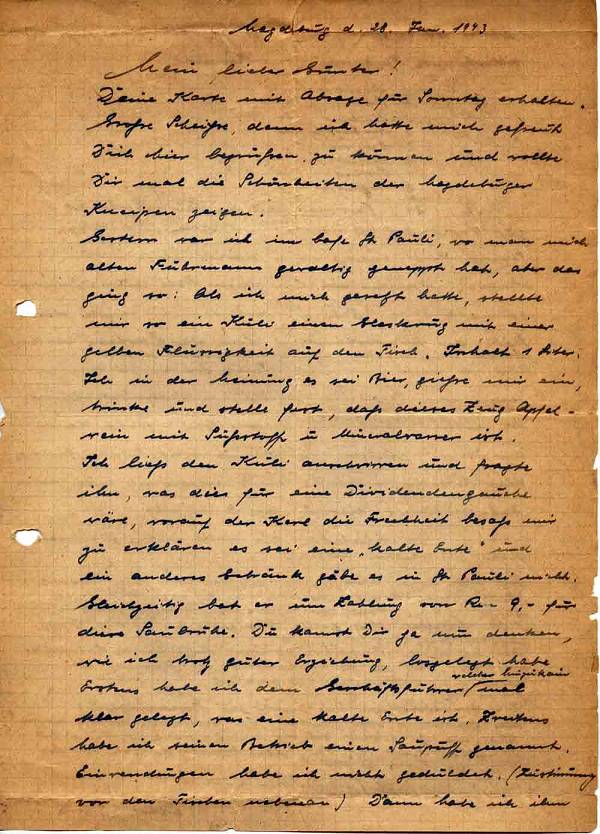 Magdeburg d. 28. Jan. 1943
Mein lieber Günter!
Deine Karte mit Absage für Sonntag erhalten.
Große Scheiße, denn ich hatte mich gefreut
Dich hier begrüßen zu können und wollte
Dir mal die Schönheiten der Magdeburger
Kneipen zeigen.
Gestern war ich im Cafe St. Pauli, wo man mich
alten Fuhrmann gewaltig geneppt hat, aber das
ging so: Als ich mich gesetzt hatte, stellte
mir so ein Kuli einen Glaskrug mit einer
gelben Flüssigkeit auf den Tisch. Inhalt 1 Liter.
Ich in der Meinung es sei Bier, gieße mir ein,
trinke und stelle fest, daß dieses Zeug Apfel-
wein mit Süßstoff u Mineralwasser ist.
Ich ließ den Kuli anschwirren und fragte
ihn, was dies für eine Dividendengauche
wäre, worauf der Kerl die Frechheit besaß mir
zu erklären es sei eine „kalte Ente" und
ein anderes Getränk gäbe es in St. Pauli nicht.
Gleichzeitig bat er um Zahlung von Rm 9,- für
diese Saubrühe. Du kannst Dir ja nun denken,
wie ich trotz guter Erziehung, losgelegt habe
Erstens habe ich dem Geschäftsführer mal
klar gelegt, was eine kalte Ente ist. Zweitens
habe ich seinen Betrieb einen Saupuff genannt.
Einwendungen habe ich nicht geduldet. (Zustimmung
von den Tischen nebenan) Dann habe ich ihm